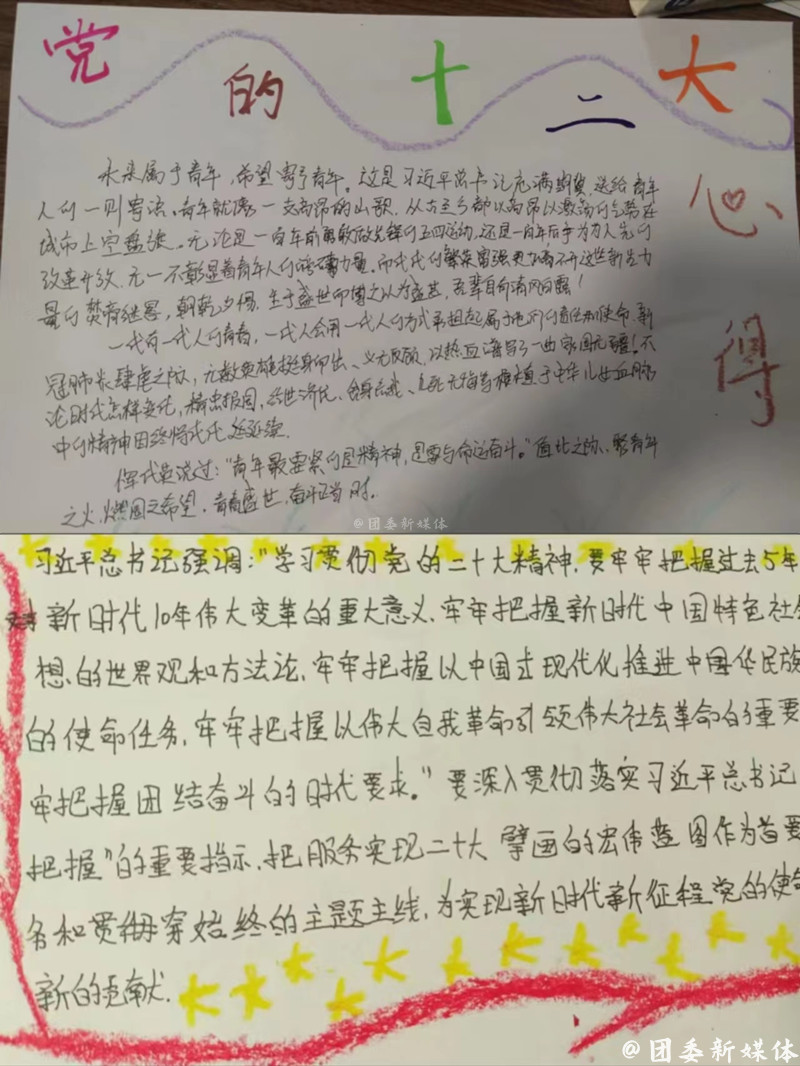 党的十二大
心得
未来属于青年,希望寄予青年。这是习近平总书记充满期货,送给青年
人们一则寄语。青年就像一支高昂的山歌,从古至今都以高昂以激荡的气势在
城市上空盘旋。无论是一百年前勇敢做先锋的五四运动,还是一百年后争为为人先的
改革开放,无一不彰显着青年人的磅礴力量。而代代的繁荣富强更加离不开这些新生力
量的焚膏继晷,朝乾夕惕。生于盛世即当之以为盛世,吾辈自
一代有一代人的青春,一代人会用一代人的方式承担起属于他们的责任和使命,新
冠肺炎肆虐之际,无数英雄挺身而出、义无反顾,以热血谱写了一曲家国无疆!不
论时代怎样变化,精忠报国,经世济民、舍身忘我、死无悔等根植于中华儿女血脉
中的精神因终将代代延续。
恽代英说过:"青年最要紧的是精神,是要与命运奋斗。"值此之际,聚青年
之火,燃国之希望,青春盛世,奋斗正当时。
@团委新媒体
习近平总书记强调:"学习贯彻党的二十大精神,要牢牢把握过去5年
新时代10年伟大变革的重大意义,牢牢把握新时代中国特色社会
想的世界观和方法论,牢牢把握以中国式现代化推进中国华民族
的使命任务,牢牢把握以伟大自我革命引领伟大社会革命的重要
牢把握团结奋斗的时代要求。"要深入贯彻落实习近平总书记
把握"的重要指示,把服务实现二十大擘画的宏伟蓝图作为首要
务和贯彻穿始终的主题主线,为实现新时代新征程党的使命
新的贡献.
@团委新媒体